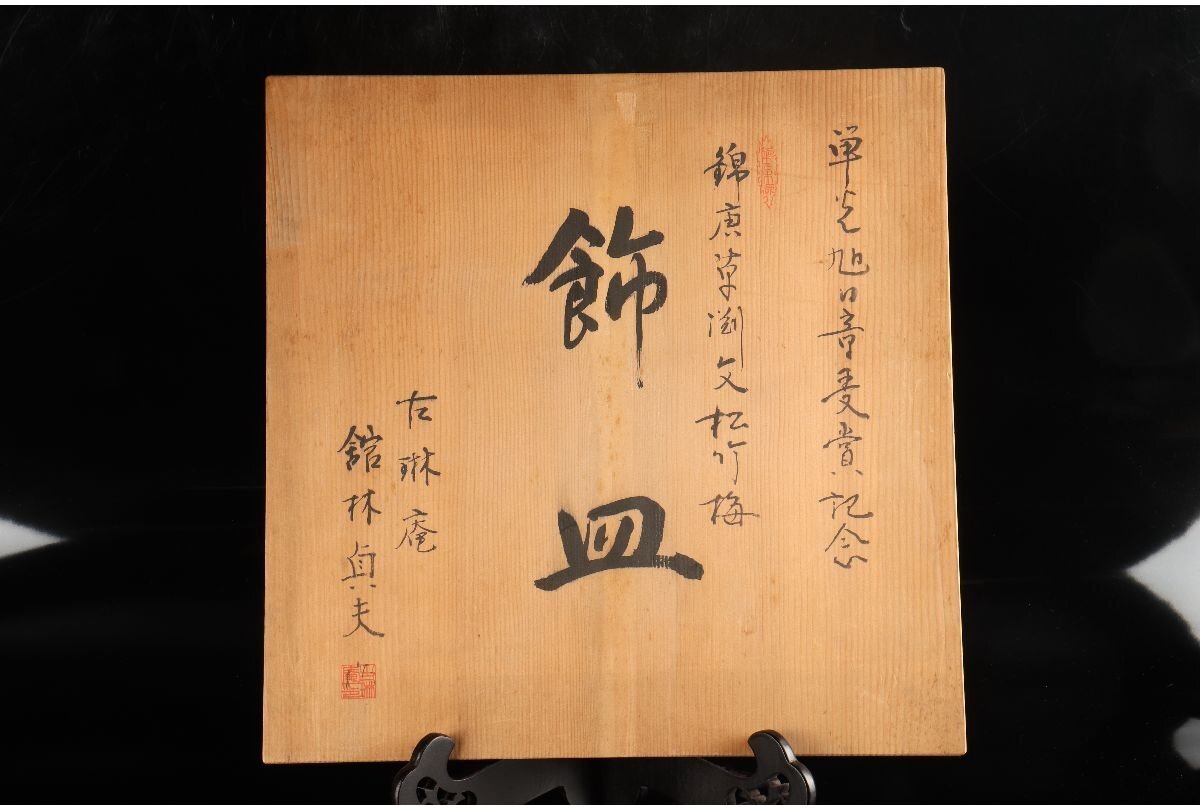 単光旭日章受賞記念
錦唐草渕文松竹梅
飾皿
古琳庵
舘林貞夫